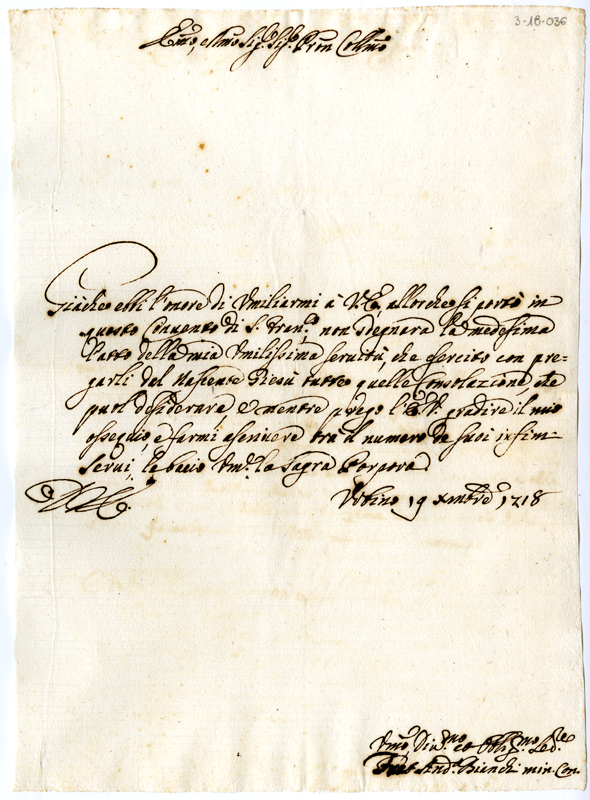 3-18-036
Emo, e Rmo Sig.r Sig.r Pron Collmo
Giache ebbi l'onore di Umiliarmi à V.E. allorche si portò in
questo Convento di S. Fran.co non sdegnarà la medesima
l'atto della mia Umilissima servitù, che esercito con pre-
garli dal Nascente Giesù tutte quelle Consolazione che
puol desiderare, e mentre prego l'E.V. gradire il mio
ossequio, e farmi ascrivere trà il numero de suoi infimi
servi, le bacio Um.te la Sagra Porpora
Urbino 19 Xmbre 1718
Umo, Div.mo et Obblig.mo Se.re
Frat And.a Bianchi min. Con.